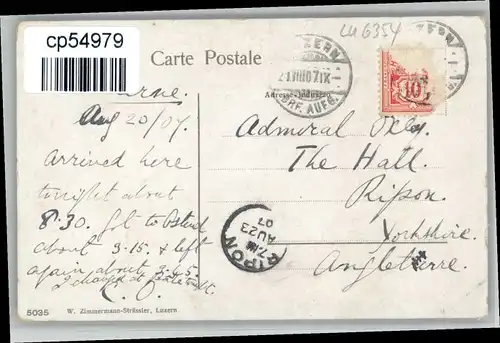 cp54979
LU 6354
Carte Postale
LUZERN
21.VIII.07.IX
BRF. AUFG.
10
Aug 20/07.
arrived here
tonight about
8.30. Got to
about 3.15 & left
again about 3.45.
I changed at
C. O.
Admiral Oxley
The Hall.
Ripon.
Yorkshire.
Angleterre.
RIPON
7 AM
AU 23
07
5035
W. Zimmermann-Strässler, Luzern